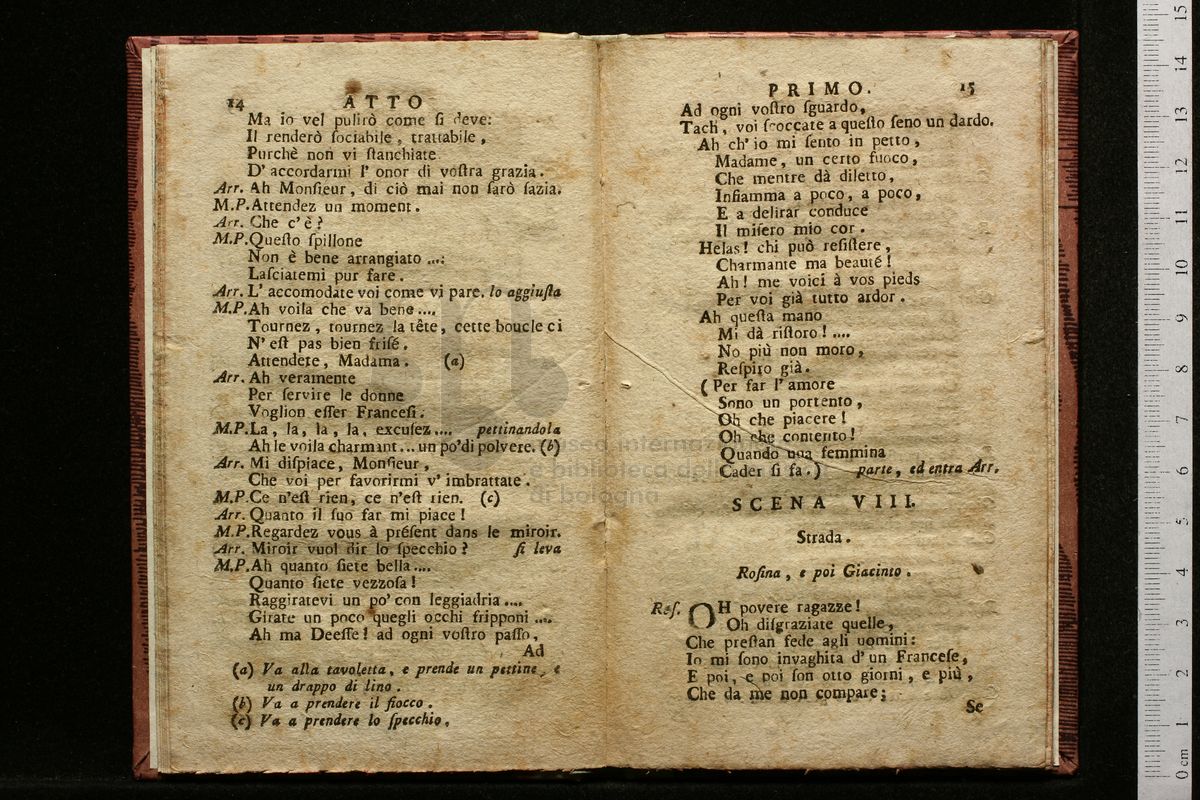 14 ATTO
Ma io vel pulirò come ſi deve:
Il renderò ſociabile, trattabile,
Purchè non vi ſtanchiate
D' accordarmi l' onor di voſtra grazia.
Arr. Ah Monſieur, di ciò mai non ſarò ſazia.
M.P. Attendez un moment.
Arr. Che c'è?
M.P. Queſto ſpillone
Non è bene arrangiato ...:
Laſciatemi pur fare.
Arr. L' accomodate voi come vi pare. lo aggiuſta
M.P. Ah voila che va bene ....
Tournez, tournez la tête, cette boucle ci
N' eſt pas bien friſé.
Attendete, Madama. (a)
Arr. Ah veramente
Per ſervire le donne
Voglion eſſer Franceſi.
M.P. La, la, la, la, excuſez .... pettinandola
Ah le voila charmant... un po' di polvere. (b)
Arr. Mi diſpiace, Monſieur,
Che voi per favorirmi v' imbrattate.
M.P. Ce n'eſt rien, ce n'eſt rien. (c)
Arr. Quanto il ſuo far mi piace!
M.P. Regardez vous à préſent dans le miroir.
Arr. Miroir vuol dir lo ſpecchio? ſi leva
M.P. Ah quanto ſiete bella ....
Quanto ſiete vezzoſa!
Raggiratevi un po' con leggiadria ....
Girate un poco quegli occhi fripponi ....
Ah ma Deeſſe! ad ogni voſtro paſſo,
Ad
(a) Va alla tavoletta, e prende un pettine, e
un drappo di lino.
(b) Va a prendere il fiocco.
(c) Va a prendere lo ſpecchio.
PRIMO. 15
Ad ogni voſtro ſguardo,
Tach, voi ſcoccate a queſto ſeno un dardo.
Ah ch' io mi ſento in petto,
Madame, un certo fuoco,
Che mentre dà diletto,
Infiamma a poco, a poco,
E a delirar conduce
Il miſero mio cor.
Helas! chi può reſiſtere,
Charmante ma beauté!
Ah! me voici à vos pieds
Per voi già tutto ardor.
Ah queſta mano
Mi dà riſtoro! ....
No più non moro,
Reſpiro già.
(Per far l' amore
Sono un portento,
Oh che piacere!
Oh che contento!
Quando una femmina
Cader ſi fa.) parte, ed entra Arr.
SCENA VIII.
Strada.
Roſina, e poi Giacinto.
Roſ. OH povere ragazze!
Oh diſgraziate quelle,
Che preſtan fede agli uomini:
Io mi ſono invaghita d' un Franceſe,
E poi, e poi ſon otto giorni, e più,
Che da me non compare;
Se
museo internazionale
e biblioteca della
di bologna
15
14
13
12
11
10
9
8
7
6
5
4
3
2
1
0 cm